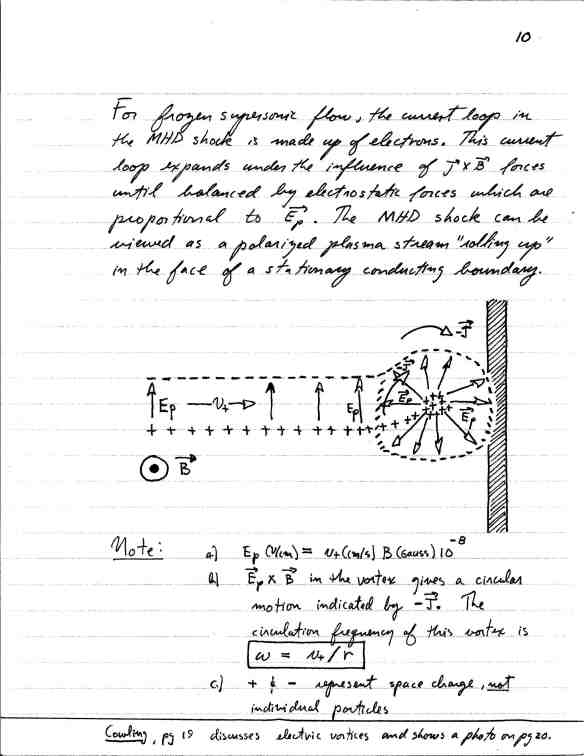 10
For frozen supersonic flow, the current loop in
the MHD shock is made up of electrons. This current
loop expands under the influence of J⃗ x B⃗ forces
until balanced by electrostatic forces which are
proportional to E⃗p. The MHD shock can be
viewed as a polarized plasma stream "rolling up"
in the face of a stationary conducting boundary.
-J⃗
Ep — v+ → Ep E⃗p E⃗p
+ + + + + + + + + + + + + + + + +
B⃗
Note: a) Ep (V/cm) = v+(cm/s) B (Gauss) 10⁻⁸
b) E⃗p x B⃗ in the vortex gives a circular
motion indicated by -J⃗. The
circulation frequency of this vortex is
ω = v+/r
c.) + & - represent space charge, not
individual particles
Cowling, pg 19 discusses electric vortices and shows a photo on pg 20.